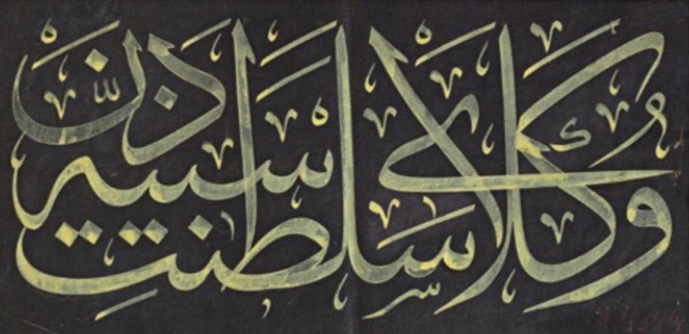 وُكلاى سلطنتِ سنيه دن